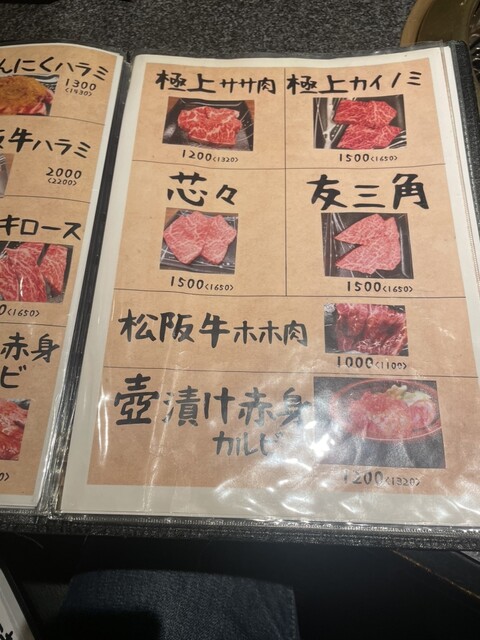 んにくハラミ
1300
<1430>
阪牛ハラミ
2000
<2200>
キロース
赤身
ビ
極上ササ肉
1200<1320>
極上カイノミ
1500<1650>
芯々
1500<1650>
友三角
1500<1650>
松阪牛ホホ肉
1000<1100>
壺漬け赤身
カルビ
1200<1320>